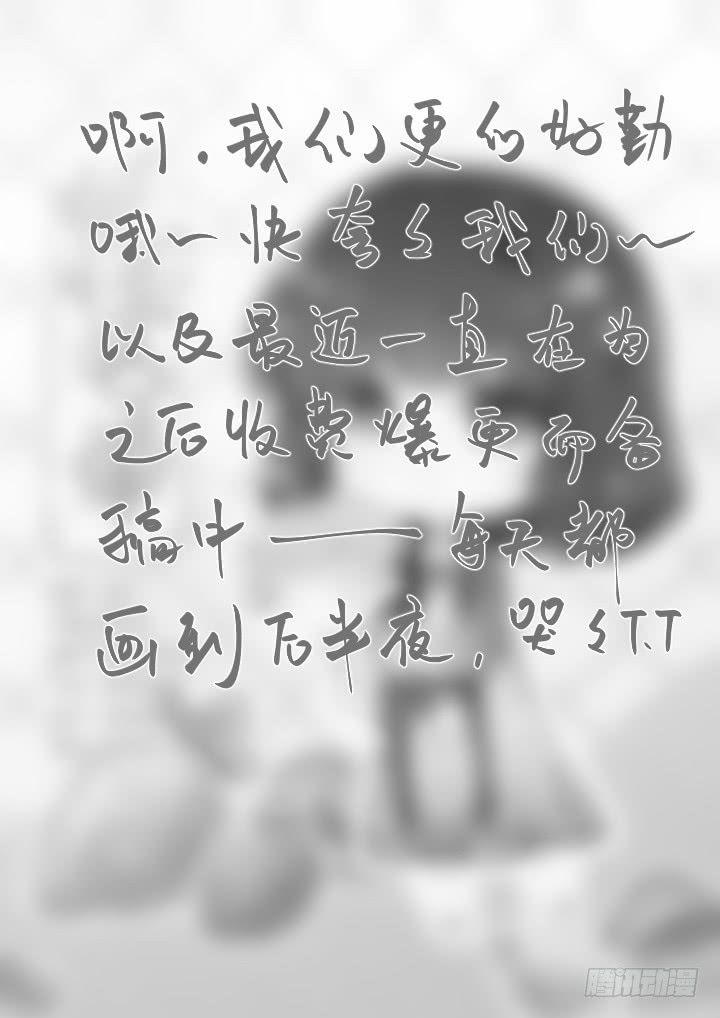 啊，我们更的好勤
哦～快夸々我们～
以及最近一直在为
之后收费爆更而备
稿中——每天都
画到后半夜，哭々T.T
腾讯动漫